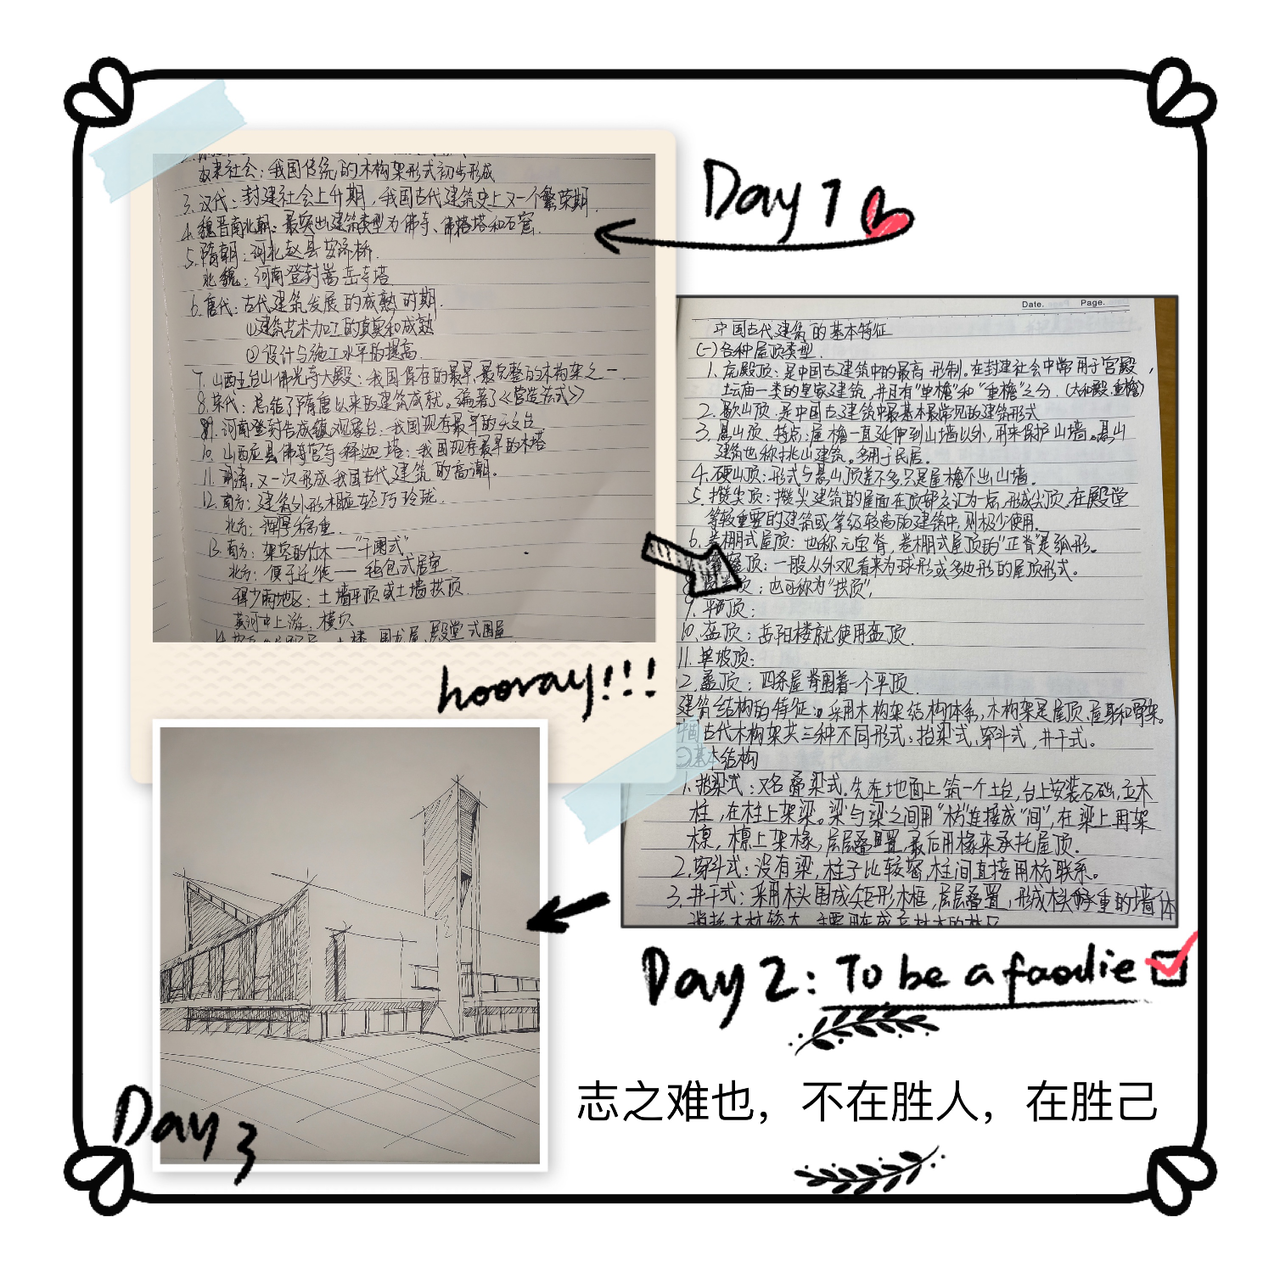 Day 1
奴隶社会：我国传统的木构架形式初步形成
3. 汉代：封建社会上升期，我国古代建筑史上又一个繁荣期.
4. 魏晋南北朝：最突出建筑类型为佛寺、佛塔和石窟.
5. 隋朝：河北赵县安济桥.
北魏：河南登封嵩岳寺塔
6. 唐代：古代建筑发展的成熟时期.
①建筑艺术加工的真实和成熟
②设计与施工水平的提高.
7. 山西五台山佛光寺大殿：我国保存的最早、最完整的木构架之一.
8. 宋代：总结了隋唐以来的建筑成就。编著了《营造法式》
9. 河南登封告成镇观象台：我国现存最早的天文台.
10. 山西应县佛宫寺释迦塔：我国现存最早的木塔
11. 明清，又一次形成我国古代建筑的高潮。
12. 南方：建筑外形相应轻巧玲珑.
北方：浑厚稳重.
13. 南方：架空的竹木—“干阑式”
北方：便于迁徙——毡包式居室
雨水少的地区：土墙平顶或土墙拱顶
黄河中上游：横穴
hooray!!!
Date. Page.
中国古代建筑的基本特征
(一)各种屋顶类型.
1. 庑殿顶：是中国古建筑中的最高形制。在封建社会中常用于宫殿，
坛庙一类的皇家建筑，并且有“单檐”和“重檐”之分.(太和殿.重檐)
2. 歇山顶.是中国古建筑中最基本最常见的建筑形式
3. 悬山顶.特点：屋檐一直延伸到山墙以外，用来保护山墙。悬山
建筑也称挑山建筑。多用于民居。
4. 硬山顶：形式与悬山顶差不多只是屋檐不出山墙.
5. 攒尖顶：攒尖建筑的屋面在顶部交汇为一点，形成尖顶，在殿堂
等较重要的建筑或等级较高的建筑中，则极少使用.
6. 卷棚式屋顶：也称元宝脊，卷棚式屋顶的“正脊”是弧形。
顶：一般从外观看来为球形或多边形的屋顶形式。
顶：也可称为“拱顶”，
9. 平顶：
10. 盔顶：岳阳楼就使用盔顶.
11. 单坡顶：
12. 盝顶：四条屋脊围着一个平顶.
建筑结构的特征：采用木构架结构体系，木构架是屋顶、屋身和骨架。
中国古代木构架共三种不同形式：抬梁式，穿斗式，井干式。
基本结构
1. 抬梁式：又名叠梁式，先在地面上筑一个土台，台上安装石础，立木
柱，在柱上架梁。梁与梁之间用“枋”连接成“间”，在梁上再架
檩，檩上架椽，层层叠置，最后用椽来承托屋顶.
2. 穿斗式：没有梁，柱子比较密，柱间直接用枋联系。
3. 井干式：采用木头围成矩形木框，层层叠置，形成木头承重的墙体
Day 2: To be a foodie
志之难也，不在胜人，在胜己
Day 3